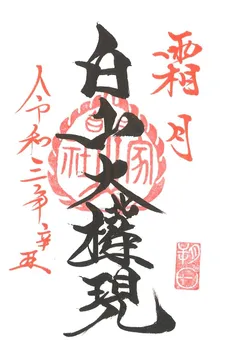 霜月
白山大権現
令和三年辛丑